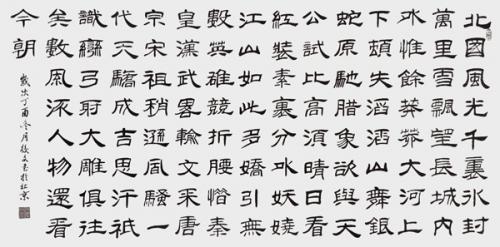 北國風光千裏氷封
萬里雪飄望長城内
外惟餘莽莽大河上
下頓失滔滔山舞銀
蛇原馳腊象欲與天
公試比高須晴日看
紅裝素裹分外妖嬈
江山如此多嬌引無
數英雄競折腰惜秦
皇漢武畧輪文采唐
宗宋祖稍遜風騷一
代天驕成吉思汗祇
識彎弓射大雕俱往
矣數風流人物還看
今朝
歲次丁酉冬月書於北京